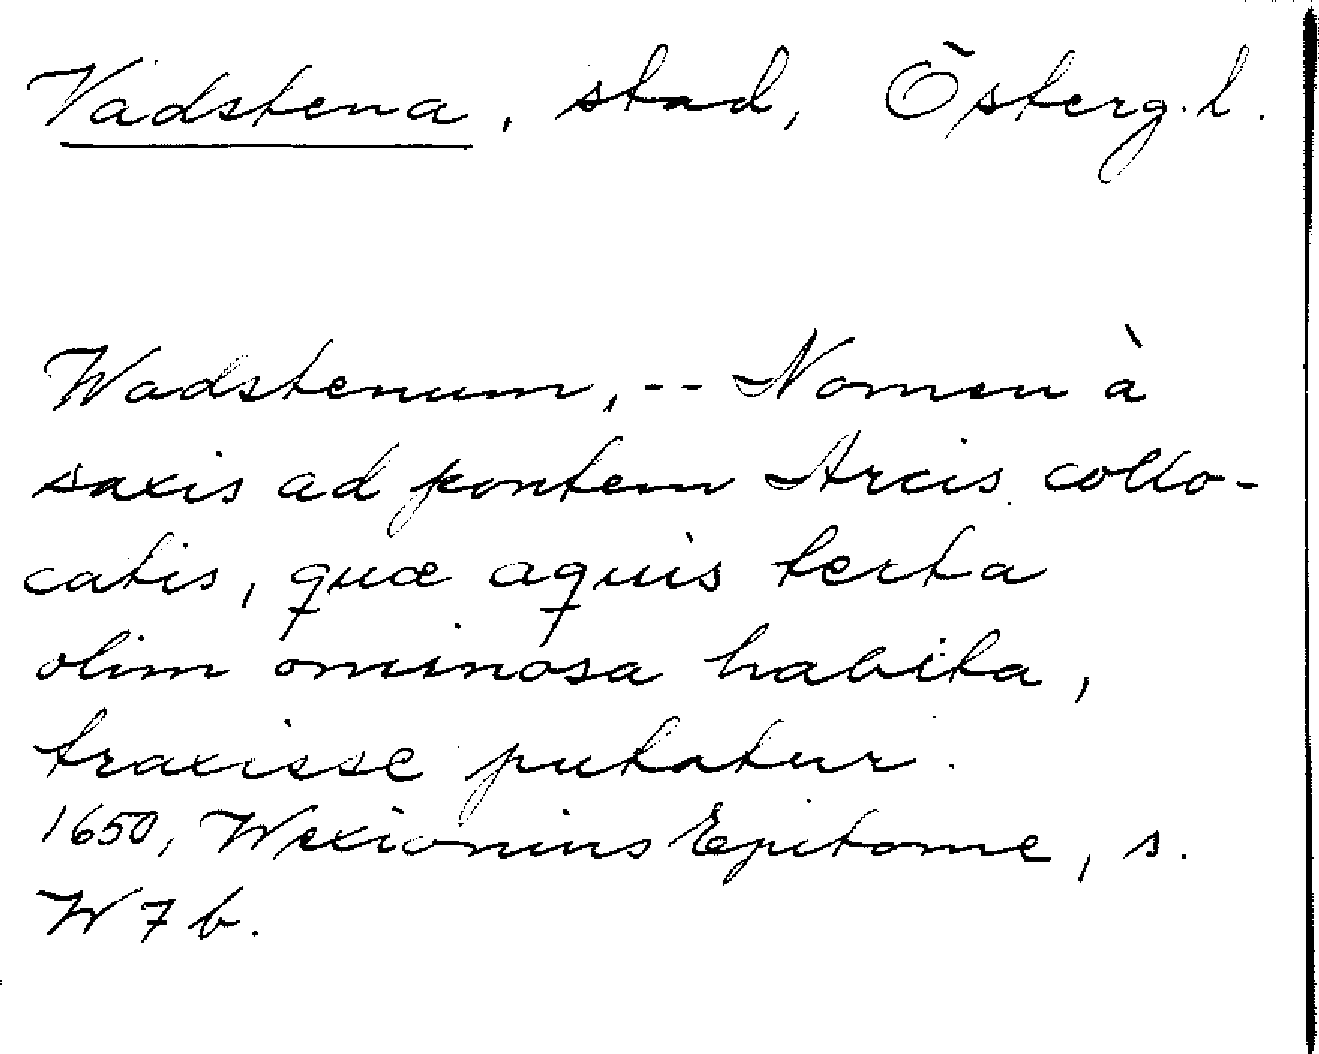 Vadstena, stad, Österg. l.
Wadstenum, -- Nomen à
saxis ad pontem Arcis collo-
catis, quæ aquis tecta
olim ominosa habita,
traxisse putatur.
1650, Wexionius Epitome, s.
W 7 b.